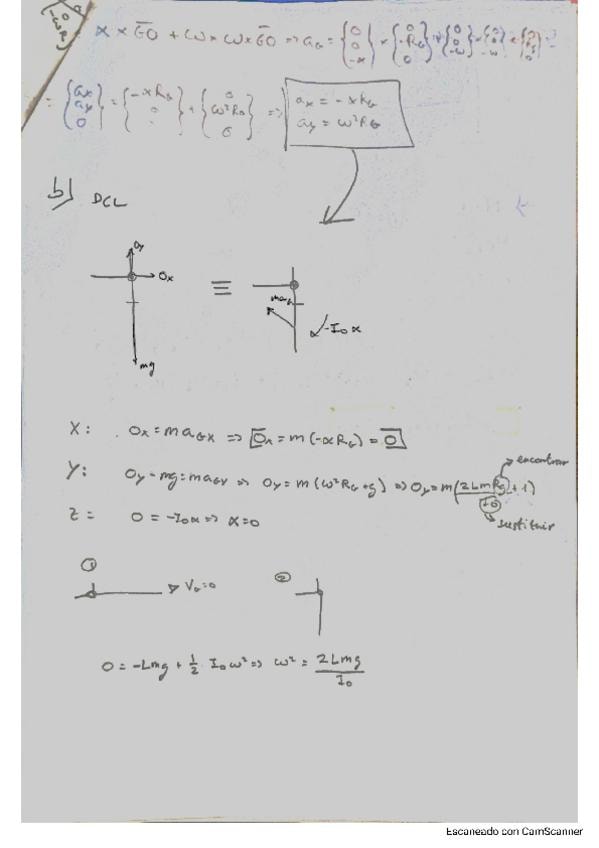 α × GO + ω × ω × GO ⇒ a_G = {0 0 -α} × {0 -R_G 0} + {0 0 -ω} ×
= {ax ay 0} = {-αR_G 0 ·} + {0 ω²R_G 0} ⇒ ax = -αR_G
ay = ω²R_G
b) DCL
Oy
Ox ≡ ma_G
-I_0 α
mg
X: Ox = m a_Gx ⇒ Ox = m(-αR_G) = 0
encontrar
Y: Oy - mg = m a_Gy ⇒ Oy = m(ω²R_G + g) ⇒ Oy = m(2LmR_g/I_0 + 1)
Z = 0 = -I_0 α ⇒ α = 0
sustituir
① V_0 = 0 ②
0 = -Lmg + 1/2 I_0 ω² ⇒ ω² = 2Lmg/I_0
Escaneado con CamScanner